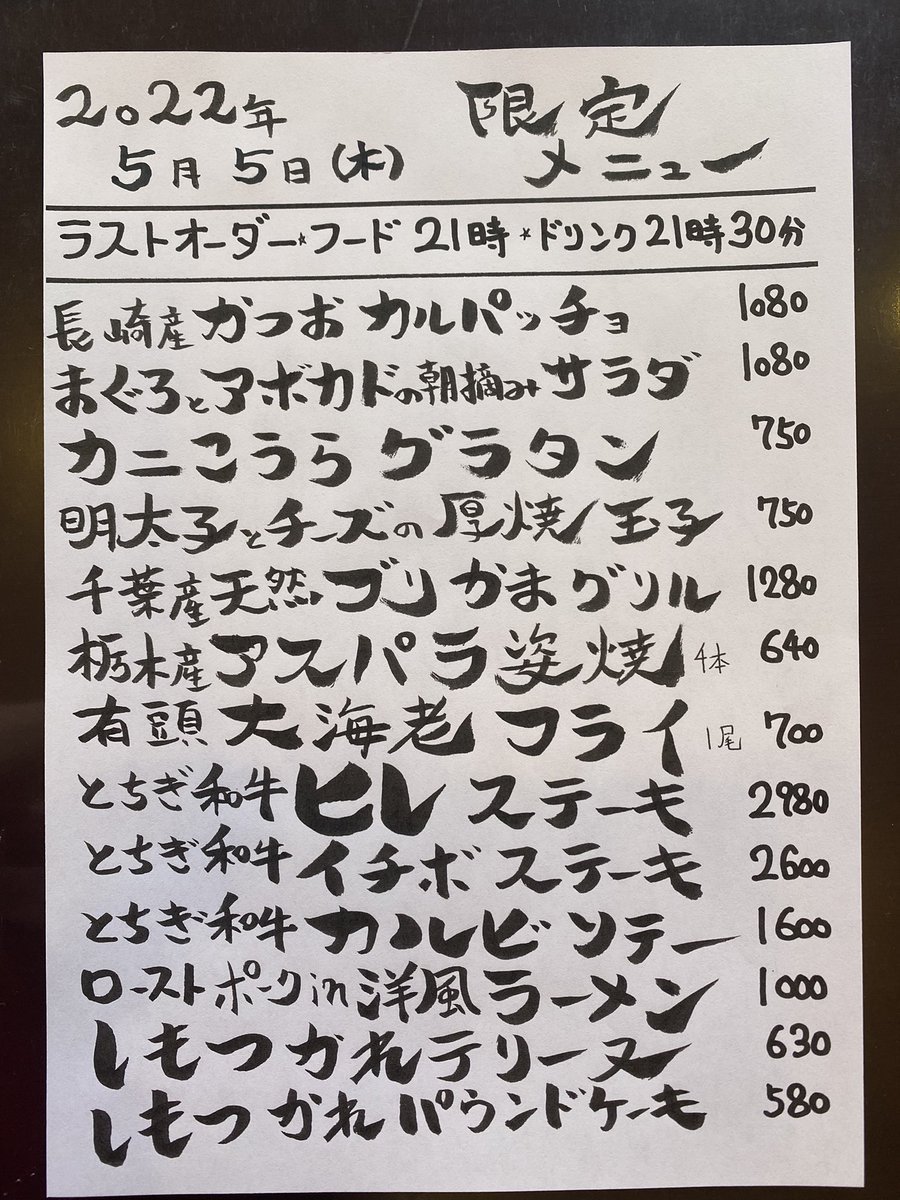 2022年 限定
5月5日(木) メニュー
ラストオーダー★フード21時★ドリンク21時30分
長崎産かつおカルパッチョ 1080
まぐろとアボカドの朝摘みサラダ 1080
カニこうらグラタン 750
明太子とチーズの厚焼玉子 750
千葉産天然ブリかまグリル 1280
栃木産アスパラ姿焼 4本 640
有頭大海老フライ 1尾 700
とちぎ和牛ヒレステーキ 2980
とちぎ和牛イチボステーキ 2600
とちぎ和牛カルビソテー 1600
ローストポークin洋風ラーメン 1000
しもつかれテリーヌ 630
しもつかれパウンドケーキ 580